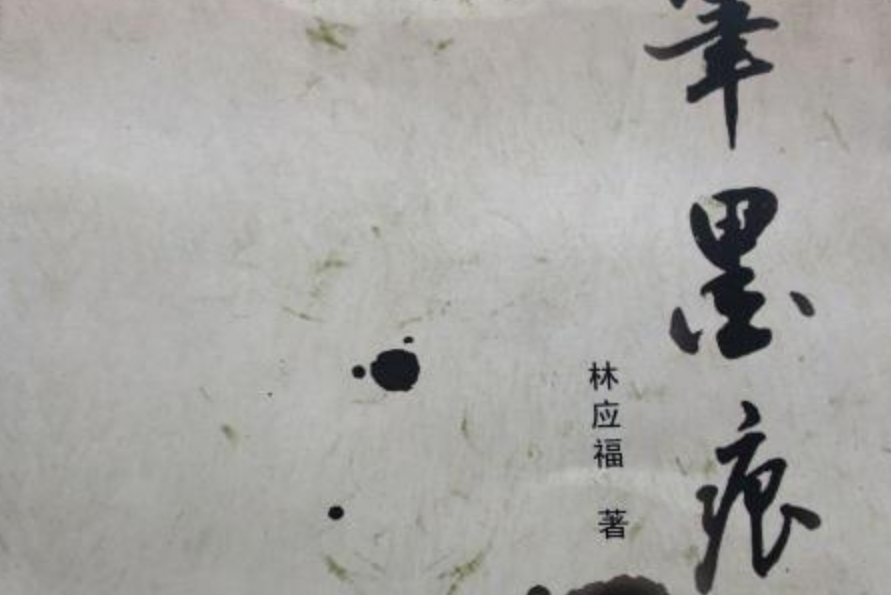 筆墨痕
林应福 著